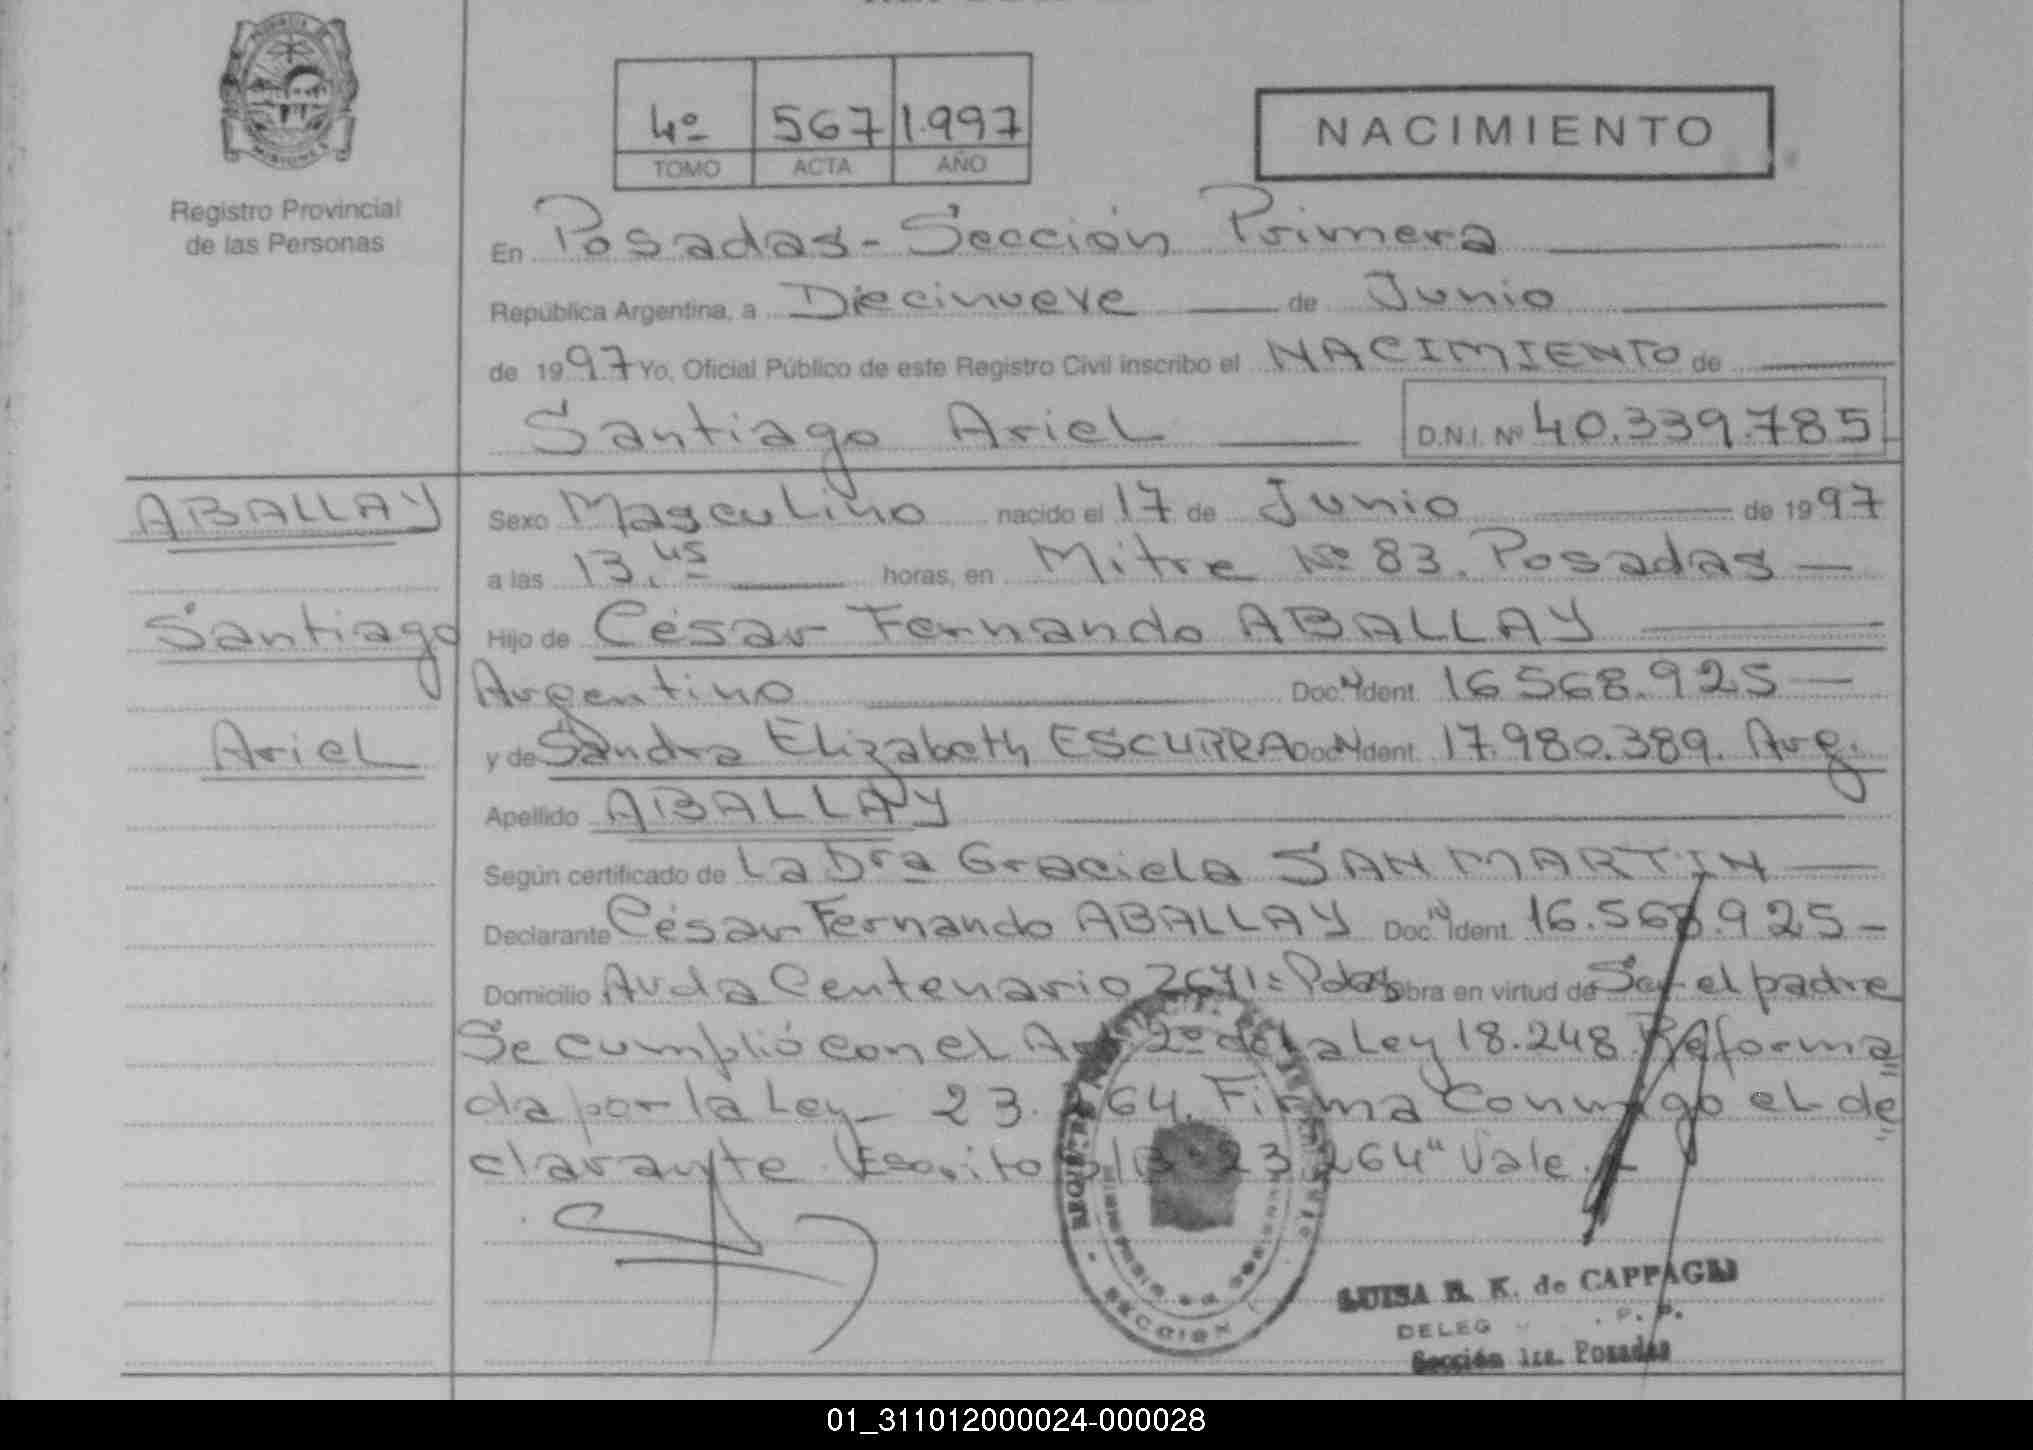 PROVINCIA DE
MISIONES
Registro Provincial
de las Personas
4º 567 1.997
TOMO ACTA AÑO
NACIMIENTO
En Posadas - Sección Primera
República Argentina, a Diecinueve de Junio
de 1997 Yo, Oficial Público de este Registro Civil inscribo el NACIMIENTO de
Santiago Ariel D.N.I. Nº 40.339.785
ABALLAY
Santiago
Ariel
Sexo Masculino nacido el 17 de Junio de 1997
a las 13.45 horas, en Mitre Nº 83. Posadas —
Hijo de César Fernando ABALLAY
Argentino Doc. Ident. 16568.925 —
y de Sandra Elizabeth ESCURRA Doc. Ident. 17.980.389. Arg.
Apellido ABALLAY
Según certificado de La Dra Graciela SAN MARTIN —
Declarante César Fernando ABALLAY Doc. Ident. 16.568.925 -
Domicilio Avda Centenario 2671 = Pdas Obra en virtud de Ser el padre
Se cumplió con el Art 2º de la Ley 18.248 Reforma
da por la Ley - 23.264. Firma Conmigo el de
clarante. Escrito S/B 23 264" Vale.
SECCION
LUISA B. K. de CAPPAGLI
DELEG R. P. P.
Sección 1ra. Posadas
01_311012000024-000028